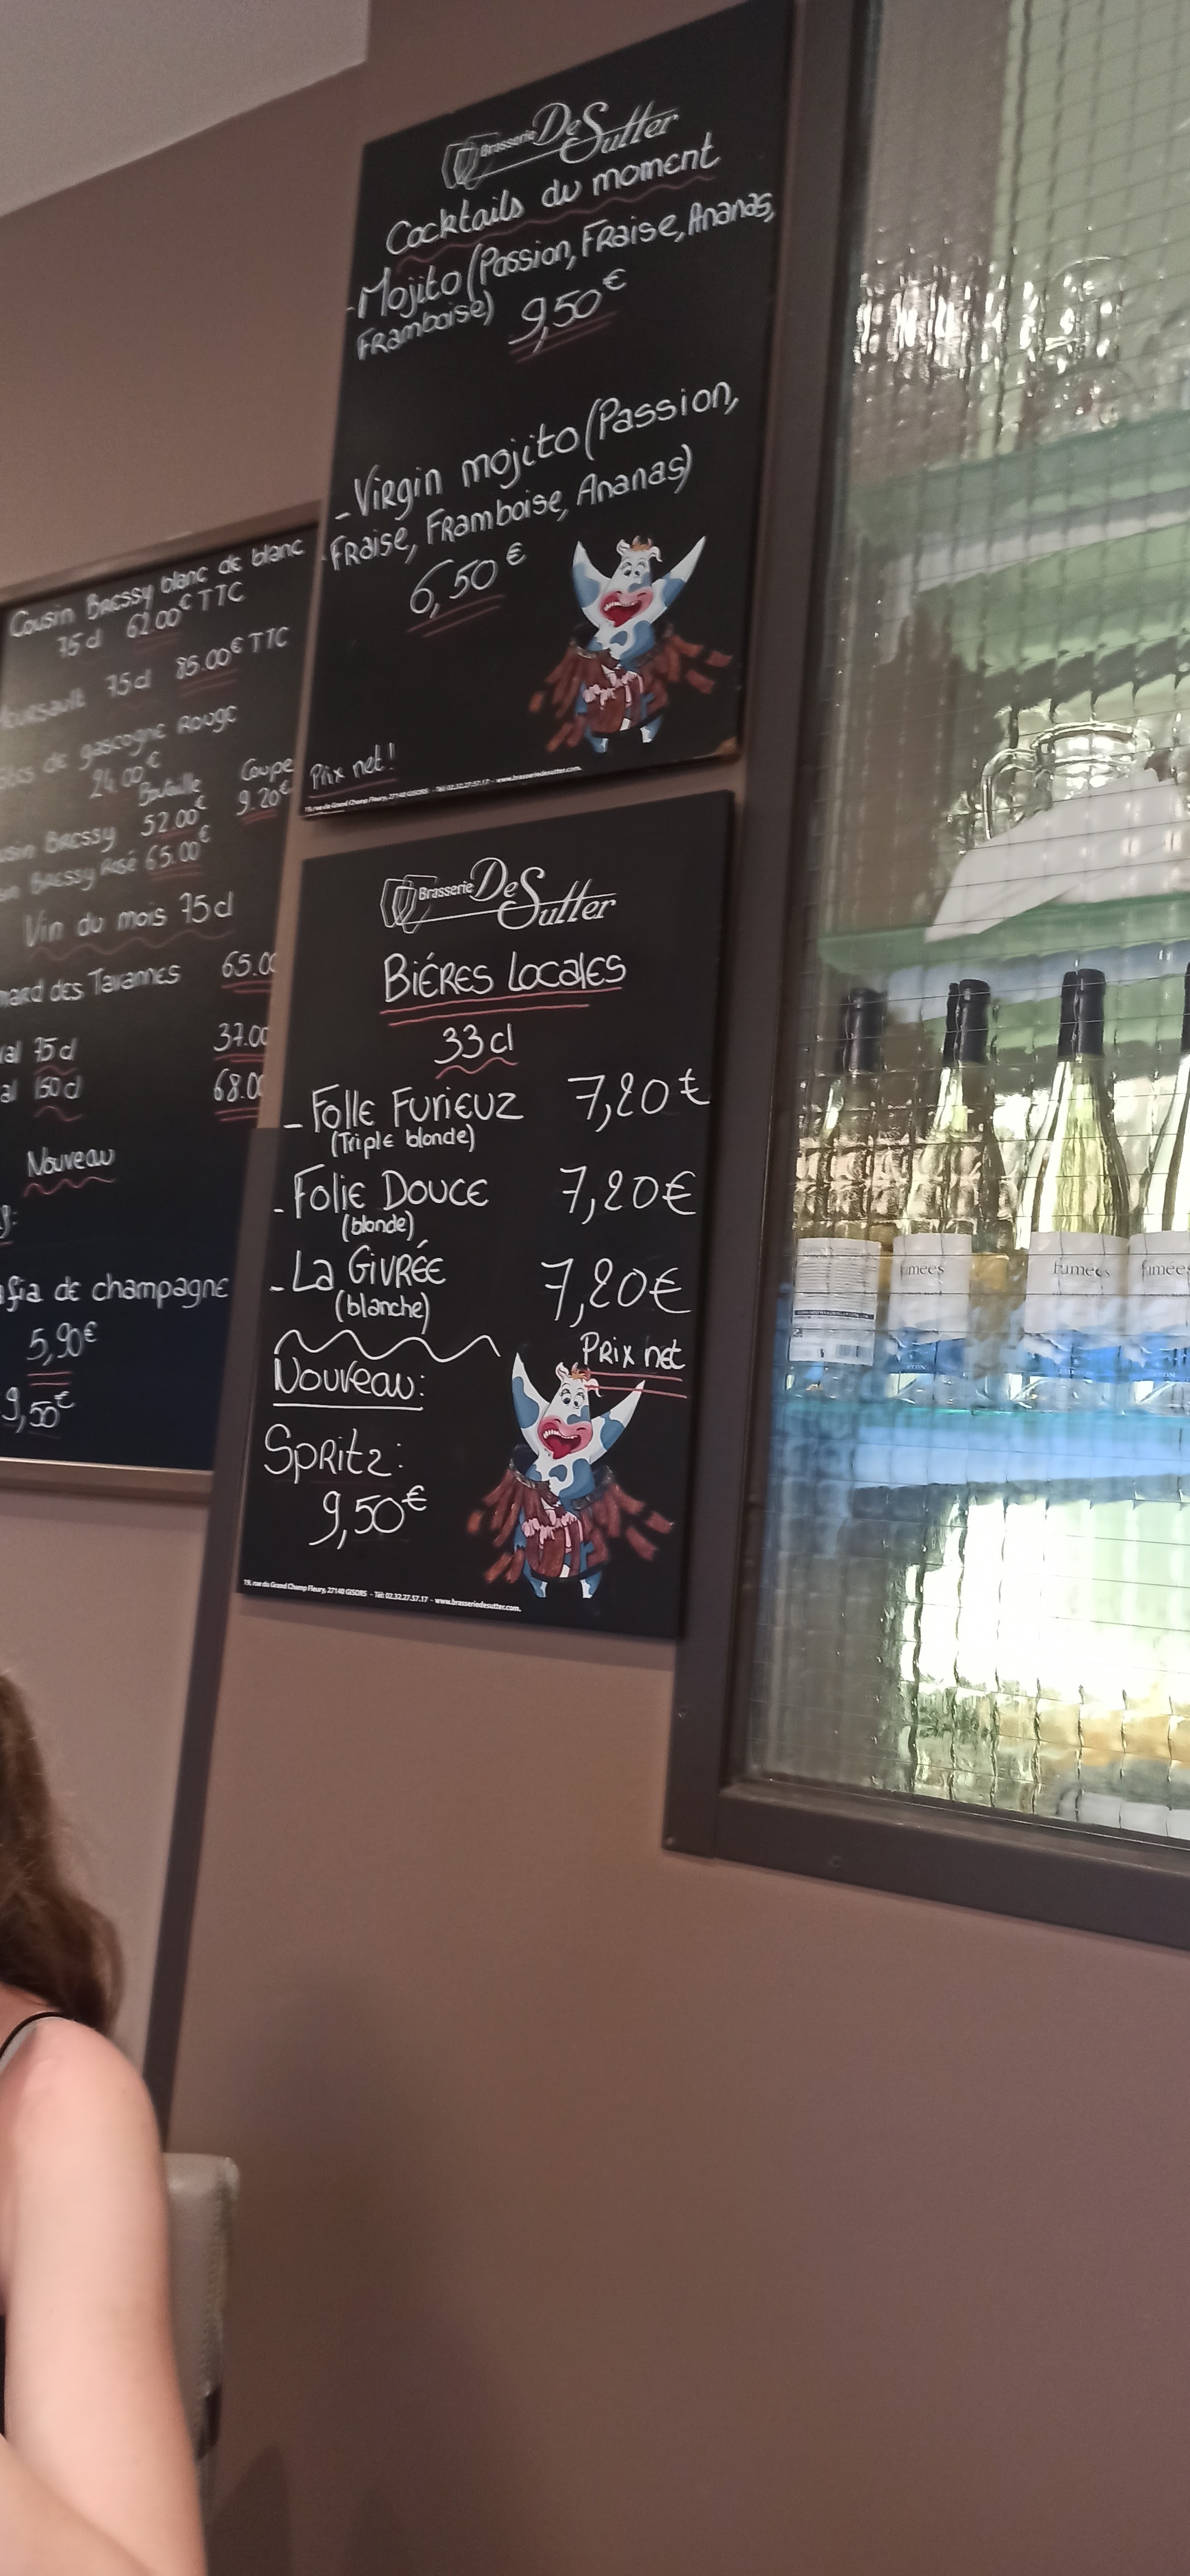 Cousin Bressy blanc de blanc
75cl 62.00€ TTC
75cl 85.00€ TTC
de gascogne Rouge
24.00€
Bouteille Coupe
Bressy 52.00€ 9.20€
Bressy Rosé 65.00€
Vin du mois 75cl
des Tavannes 65.00
75cl 37.00
150cl 68.00
Nouveau
de champagne
5,90€
9,50€
Brasserie De Sutter
Cocktails du moment
- Mojito (Passion, Fraise, Ananas,
Framboise) 9,50€
- Virgin mojito (Passion,
Fraise, Framboise, Ananas)
6,50€
Prix net!
19, rue du Grand Champ Fleury, 27140 GISORS - Tél: 02.32.27.57.17 - www.brasseriedesutter.com.
Brasserie De Sutter
Biéres Locales
33cl
- Folle Furieuz 7,20€
(Triple blonde)
- Folie Douce 7,20€
(blonde)
- La Givrée 7,20€
(blanche)
Prix net
Nouveau:
Spritz:
9,50€
19, rue du Grand Champ Fleury, 27140 GISORS - Tél: 02.32.27.57.17 - www.brasseriedesutter.com.
fumées
fumées